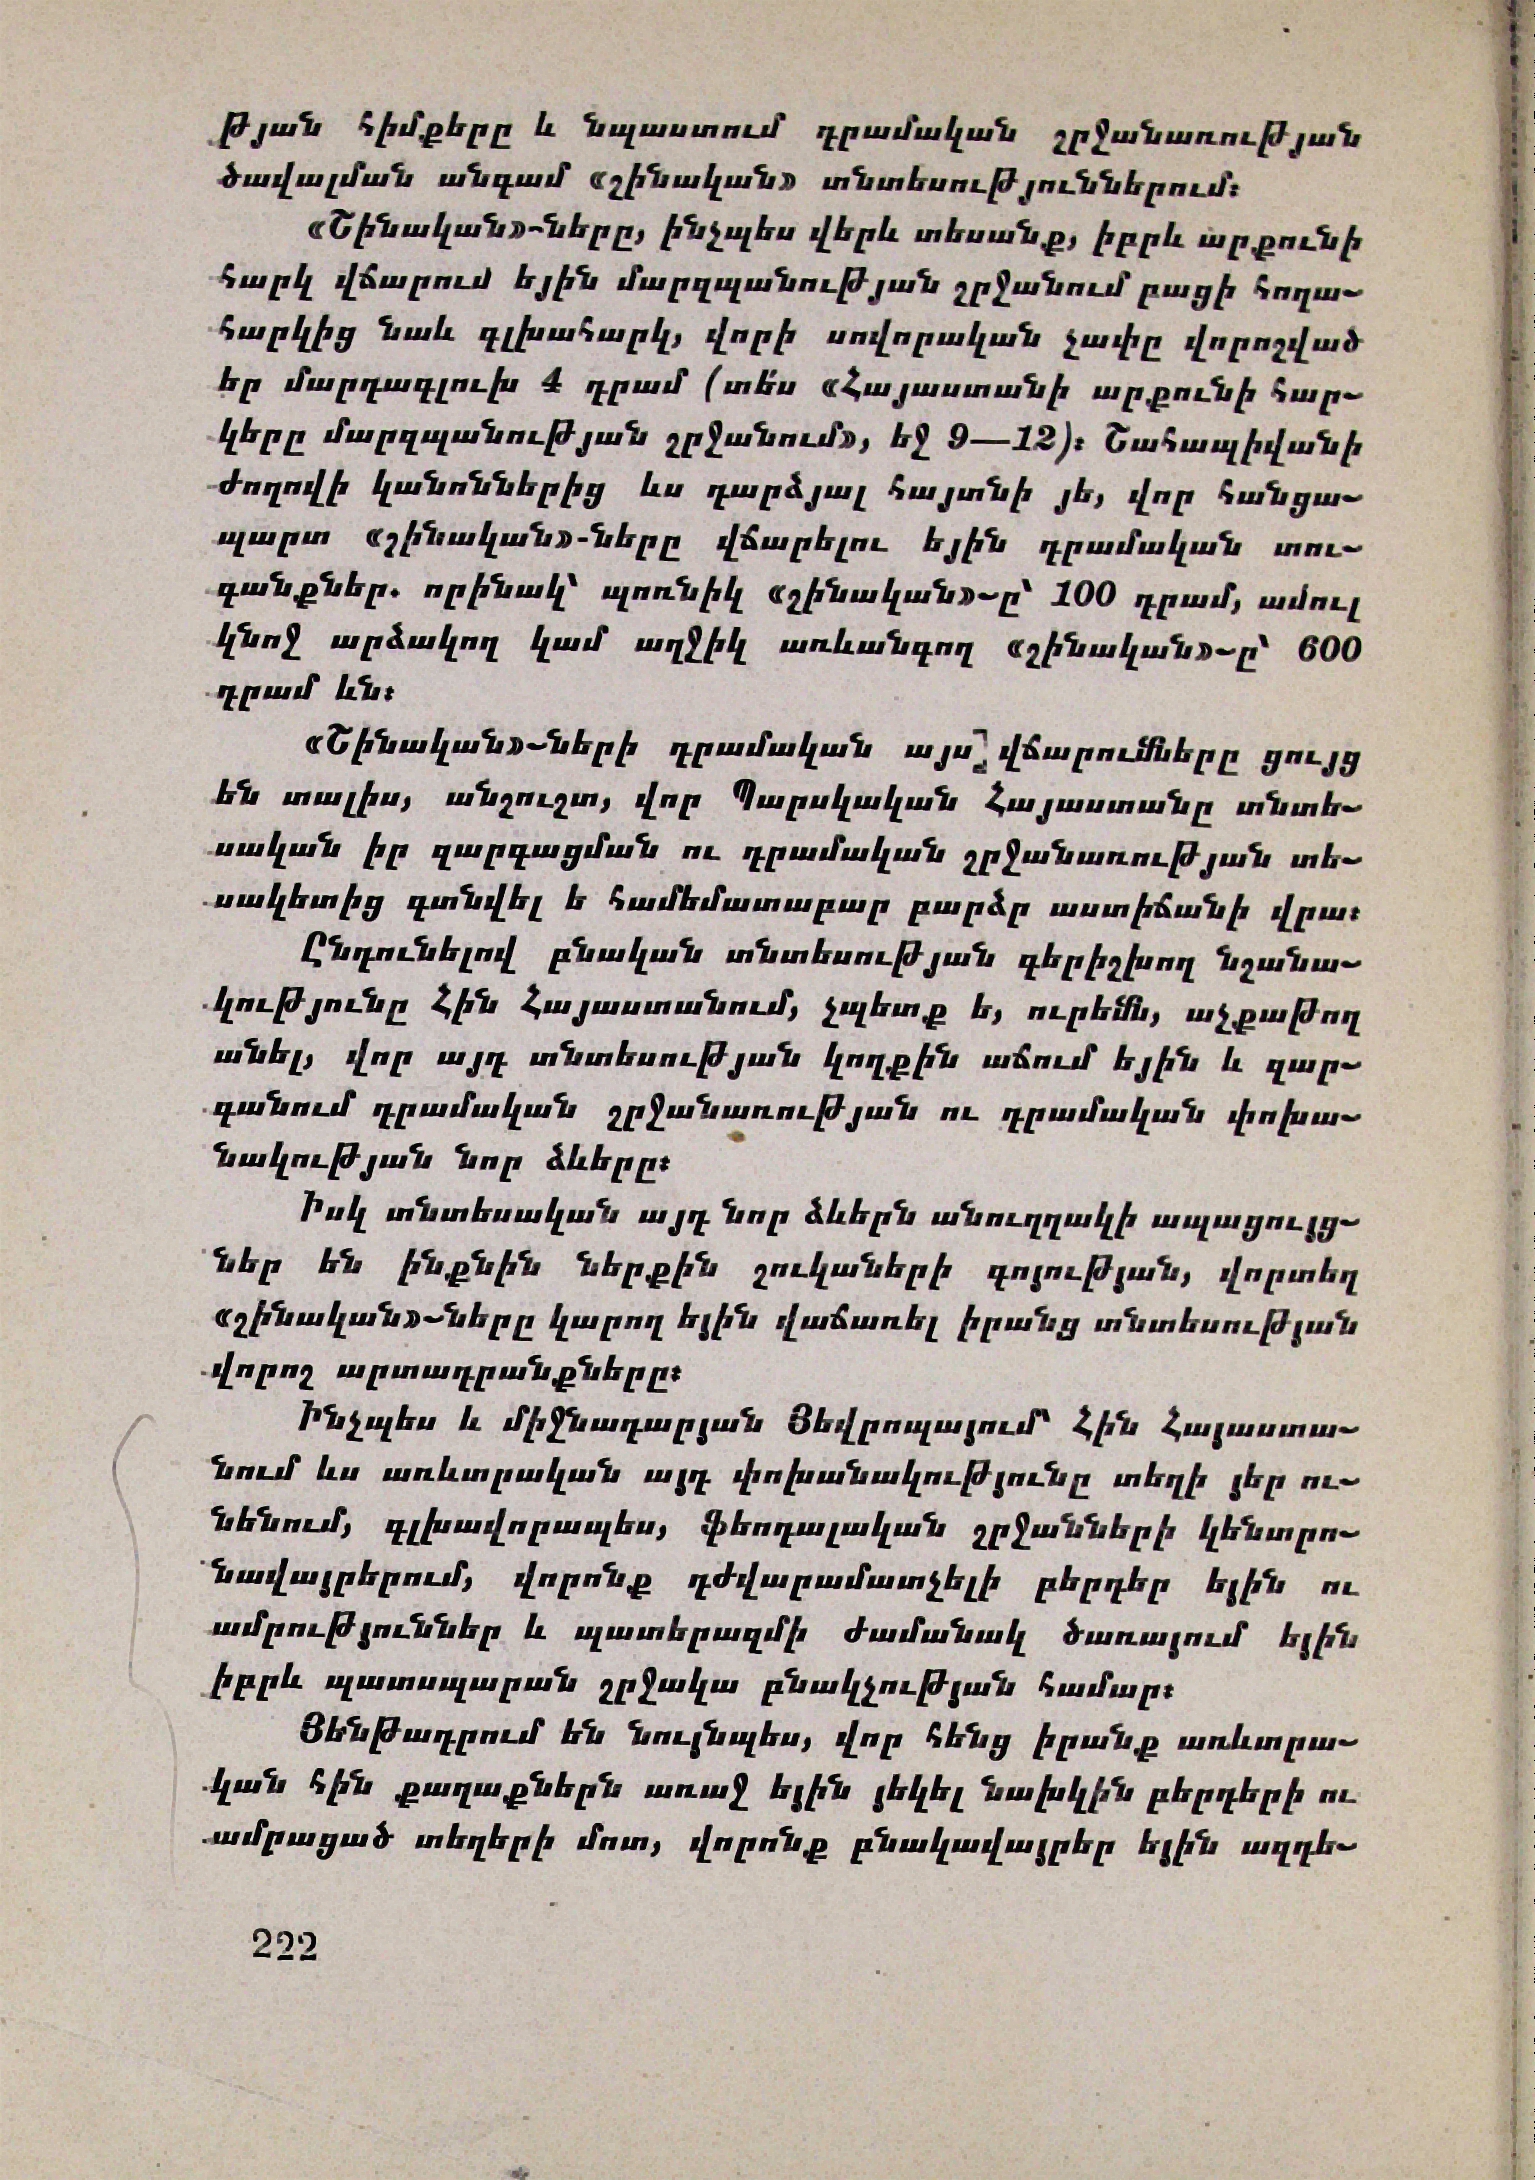 թյան հիմքերը և նպաստում դրամական շրջանառության
ծավալման անգամ «շինական» տնտեսություններում։
«Շինական»-ները, ինչպես վերև տեսանք, իբրև արքունի
հարկ վճարում եյին մարզպանության շրջանում բացի հողա-
հարկից նաև գլխահարկ, վորի սովորական չափը վորոշված
եր մարդագլուխ 4 դրամ (տե՛ս «Հայաստանի արքունի հար-
կերը մարզպանության շրջանում», եջ 9—12)։ Շահապիվանի
ժողովի կանոններից ևս դարձյալ հայտնի յե, վոր հանցա-
պարտ «շինական»-ները վճարելու եյին դրամական տու-
գանքներ. որինակ՝ պոռնիկ «շինական»-ը՝ 100 դրամ, ամուլ
կնոջ արձակող կամ աղջիկ առևանգող «շինական»-ը՝ 600
դրամ ևն։
«Շինական»-ների դրամական այս վճարումները ցույց
են տալիս, անշուշտ, վոր Պարսկական Հայաստանը տնտե-
սական իր զարգացման ու դրամական շրջանառության տե-
սակետից գտնվել ե համեմատաբար բարձր աստիճանի վրա։
Ընդունելով բնական տնտեսության գերիշխող նշանա-
կությունը Հին Հայաստանում, չպետք ե, ուրեմն, աչքաթող
անել, վոր այդ տնտեսության կողքին աճում եյին և զար-
գանում դրամական շրջանառության ու դրամական փոխա-
նակության նոր ձևերը։
Իսկ տնտեսական այդ նոր ձևերն անուղղակի ապացույց-
ներ են ինքնին ներքին շուկաների գոյության, վորտեղ
«շինական»-ները կարող եյին վաճառել իրանց տնտեսության
վորոշ արտադրանքները։
Ինչպես և միջնադարյան Յեվրոպայում՝ Հին Հայաստա-
նում ևս առևտրական այդ փոխանակությունը տեղի յեր ու-
նենում, գլխավորապես, ֆեոդալական շրջանների կենտրո-
նավայրերում, վորոնք դժվարամատչելի բերդեր եյին ու
ամրություններ և պատերազմի ժամանակ ծառայում եյին
իբրև պատսպարան շրջակա բնակչության համար։
Յենթադրում են նույնպես, վոր հենց իրանք առևտրա-
կան հին քաղաքներն առաջ եյին յեկել նախկին բերդերի ու
ամրացած տեղերի մոտ, վորոնք բնակավայրեր եյին ազդե-
222